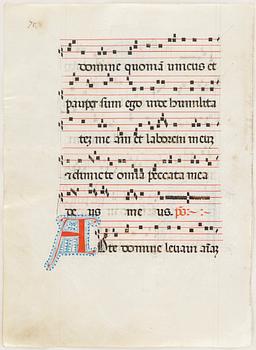 domine quoniã unicus et
pauper sum ego vide humilita
tez me am et laborem meuz
et dimitte omnia peccata mea
de us me us. ps:
AD te domine levavi aîaz